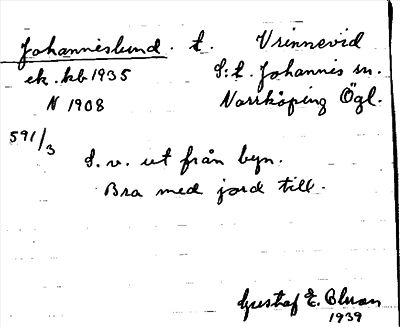 Johanneslund. t. Vrinnevid
ek. kb 1935 S:t. Johannis sn.
N 1908 Norrköping Ögl.
591/3
S. v. ut från byn.
Bra med jord till.
Gustaf E. Bluan
1939